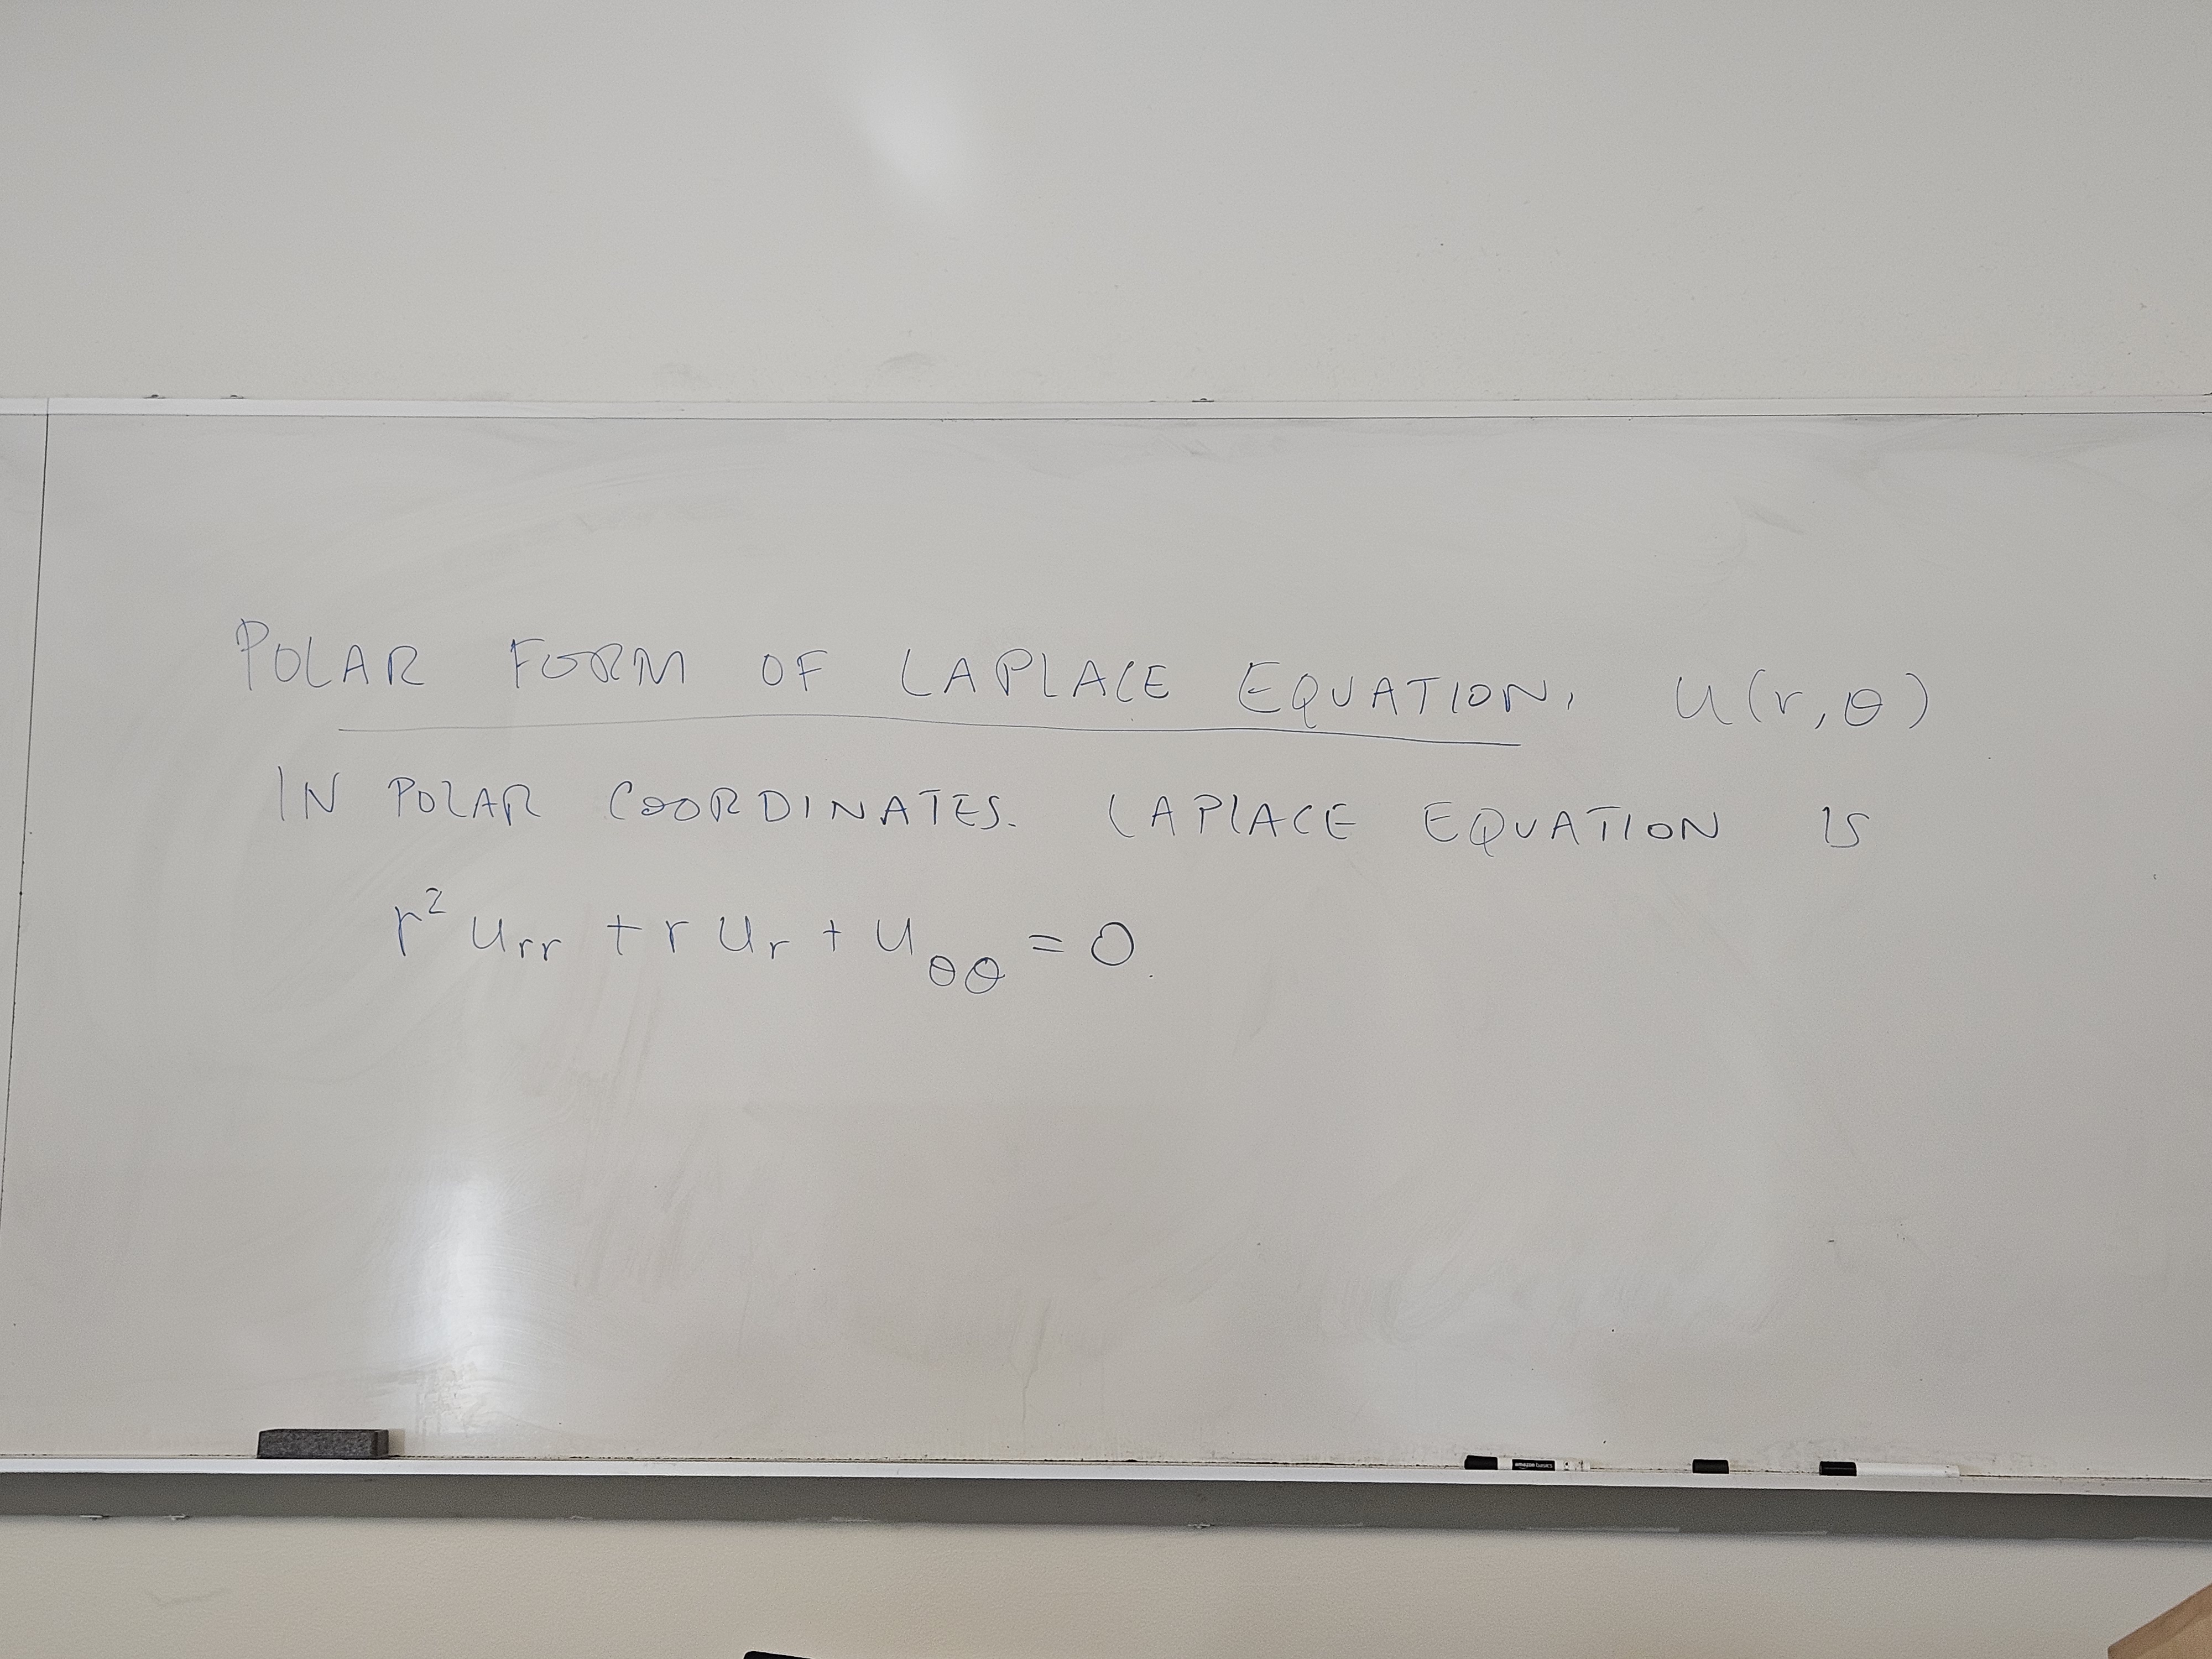 POLAR FORM OF LAPLACE EQUATION, u(r,θ)
IN POLAR COORDINATES. LAPLACE EQUATION IS
r² u_rr + r u_r + u_θθ = 0.
amazon basics